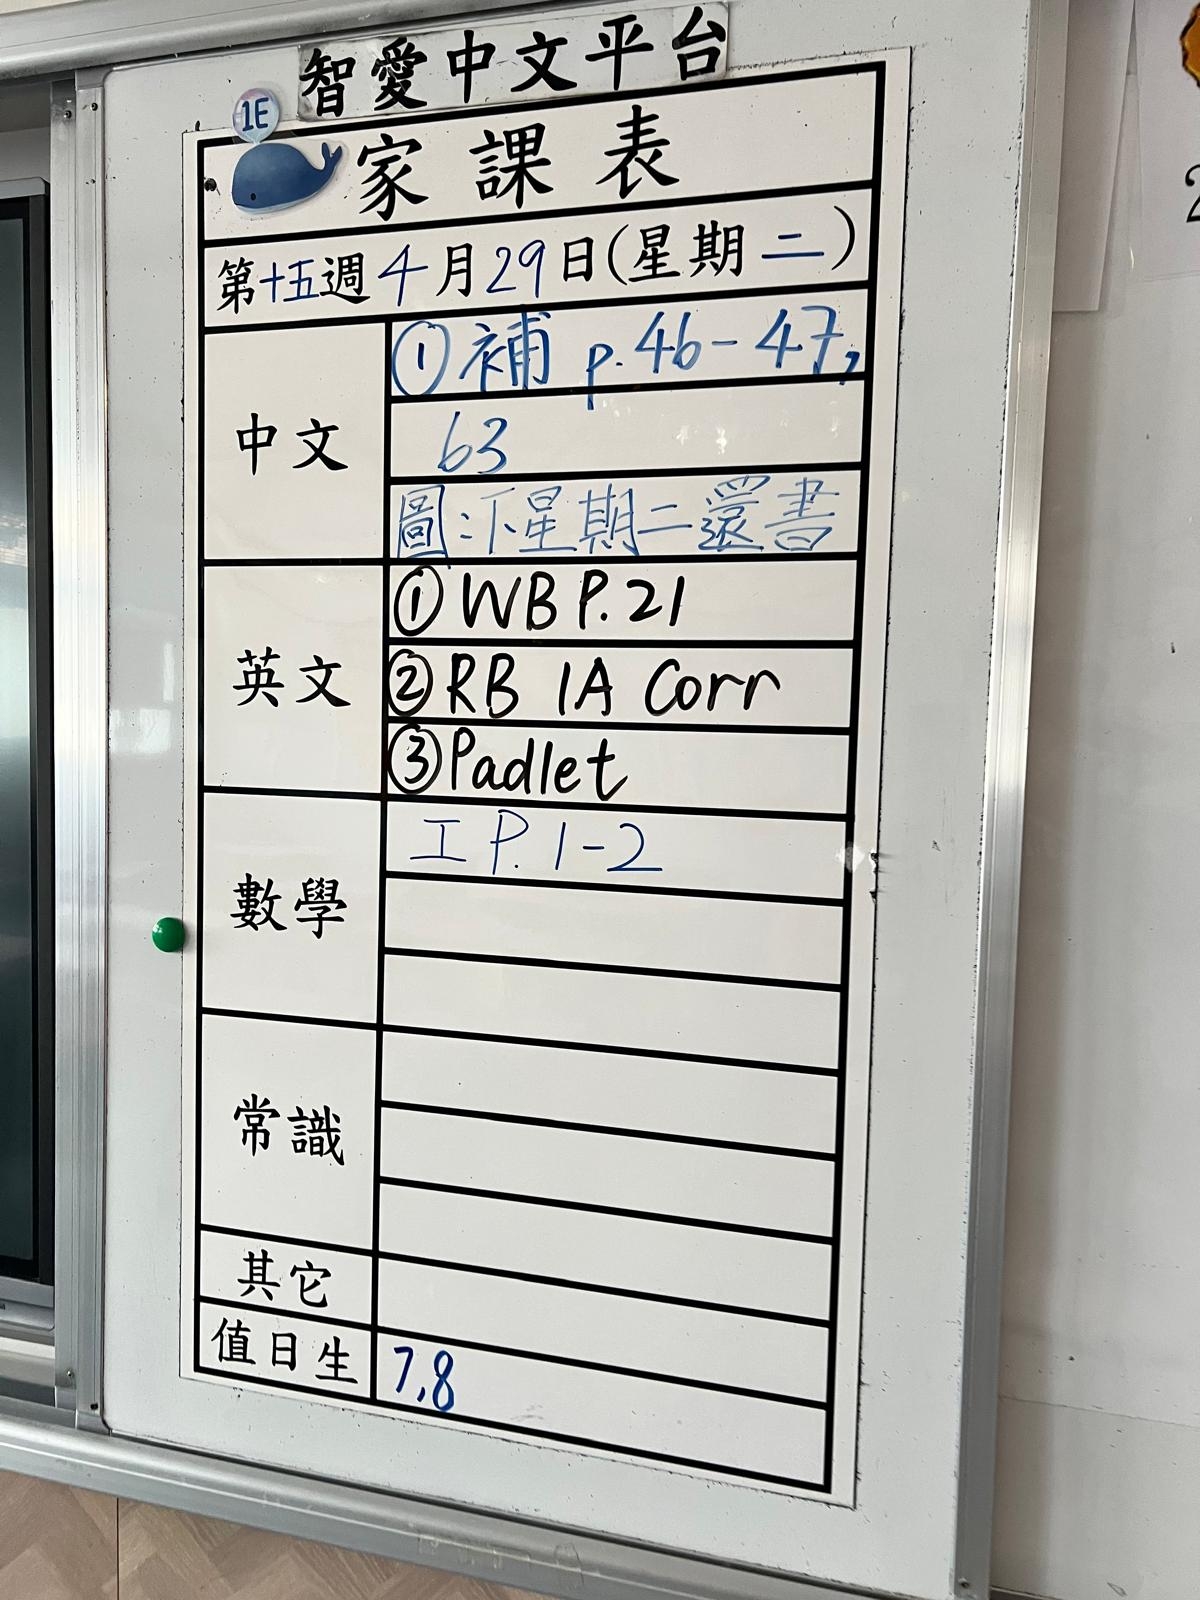 智愛中文平台
1E
家課表
第十五週4月29日(星期二)
中文
①補 p.46-47,
63
圖:下星期二還書
英文
①WB P.21
②RB 1A Corr
③Padlet
數學
工 P.1-2
常識
其它
值日生
7,8